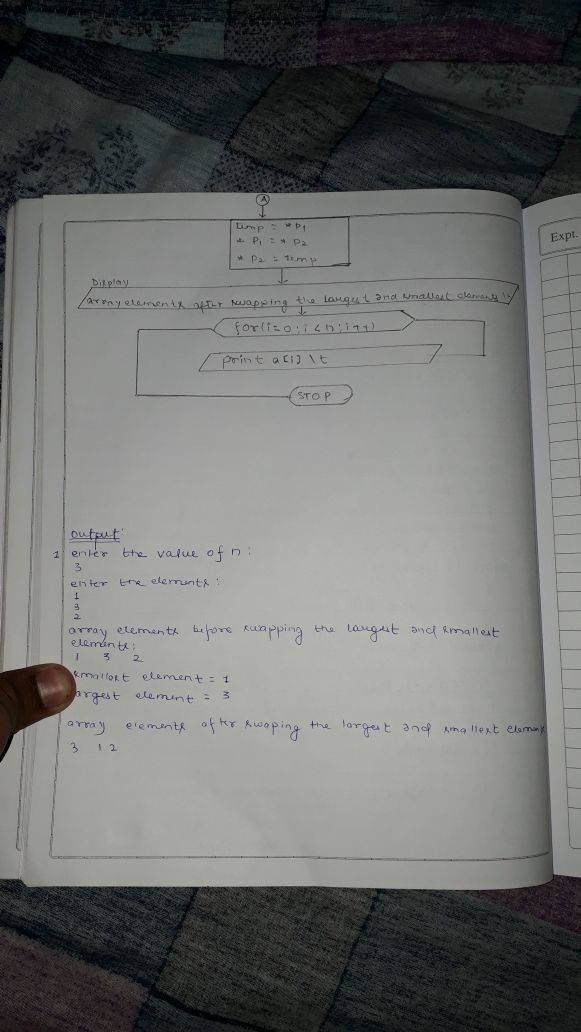 A
temp = *p1
* p1 = * p2
* p2 = temp
Display
array elements after swapping the largest and smallest element \n
for(i=0;i<n;i++)
print a[i] \t
STOP
Expt.
output:
1 enter the value of n:
3
enter the elements:
1
3
2
array elements before swapping the largest and smallest
elements:
1 3 2
smallest element = 1
largest element = 3
array elements after swaping the largest and smallest element
3 1 2